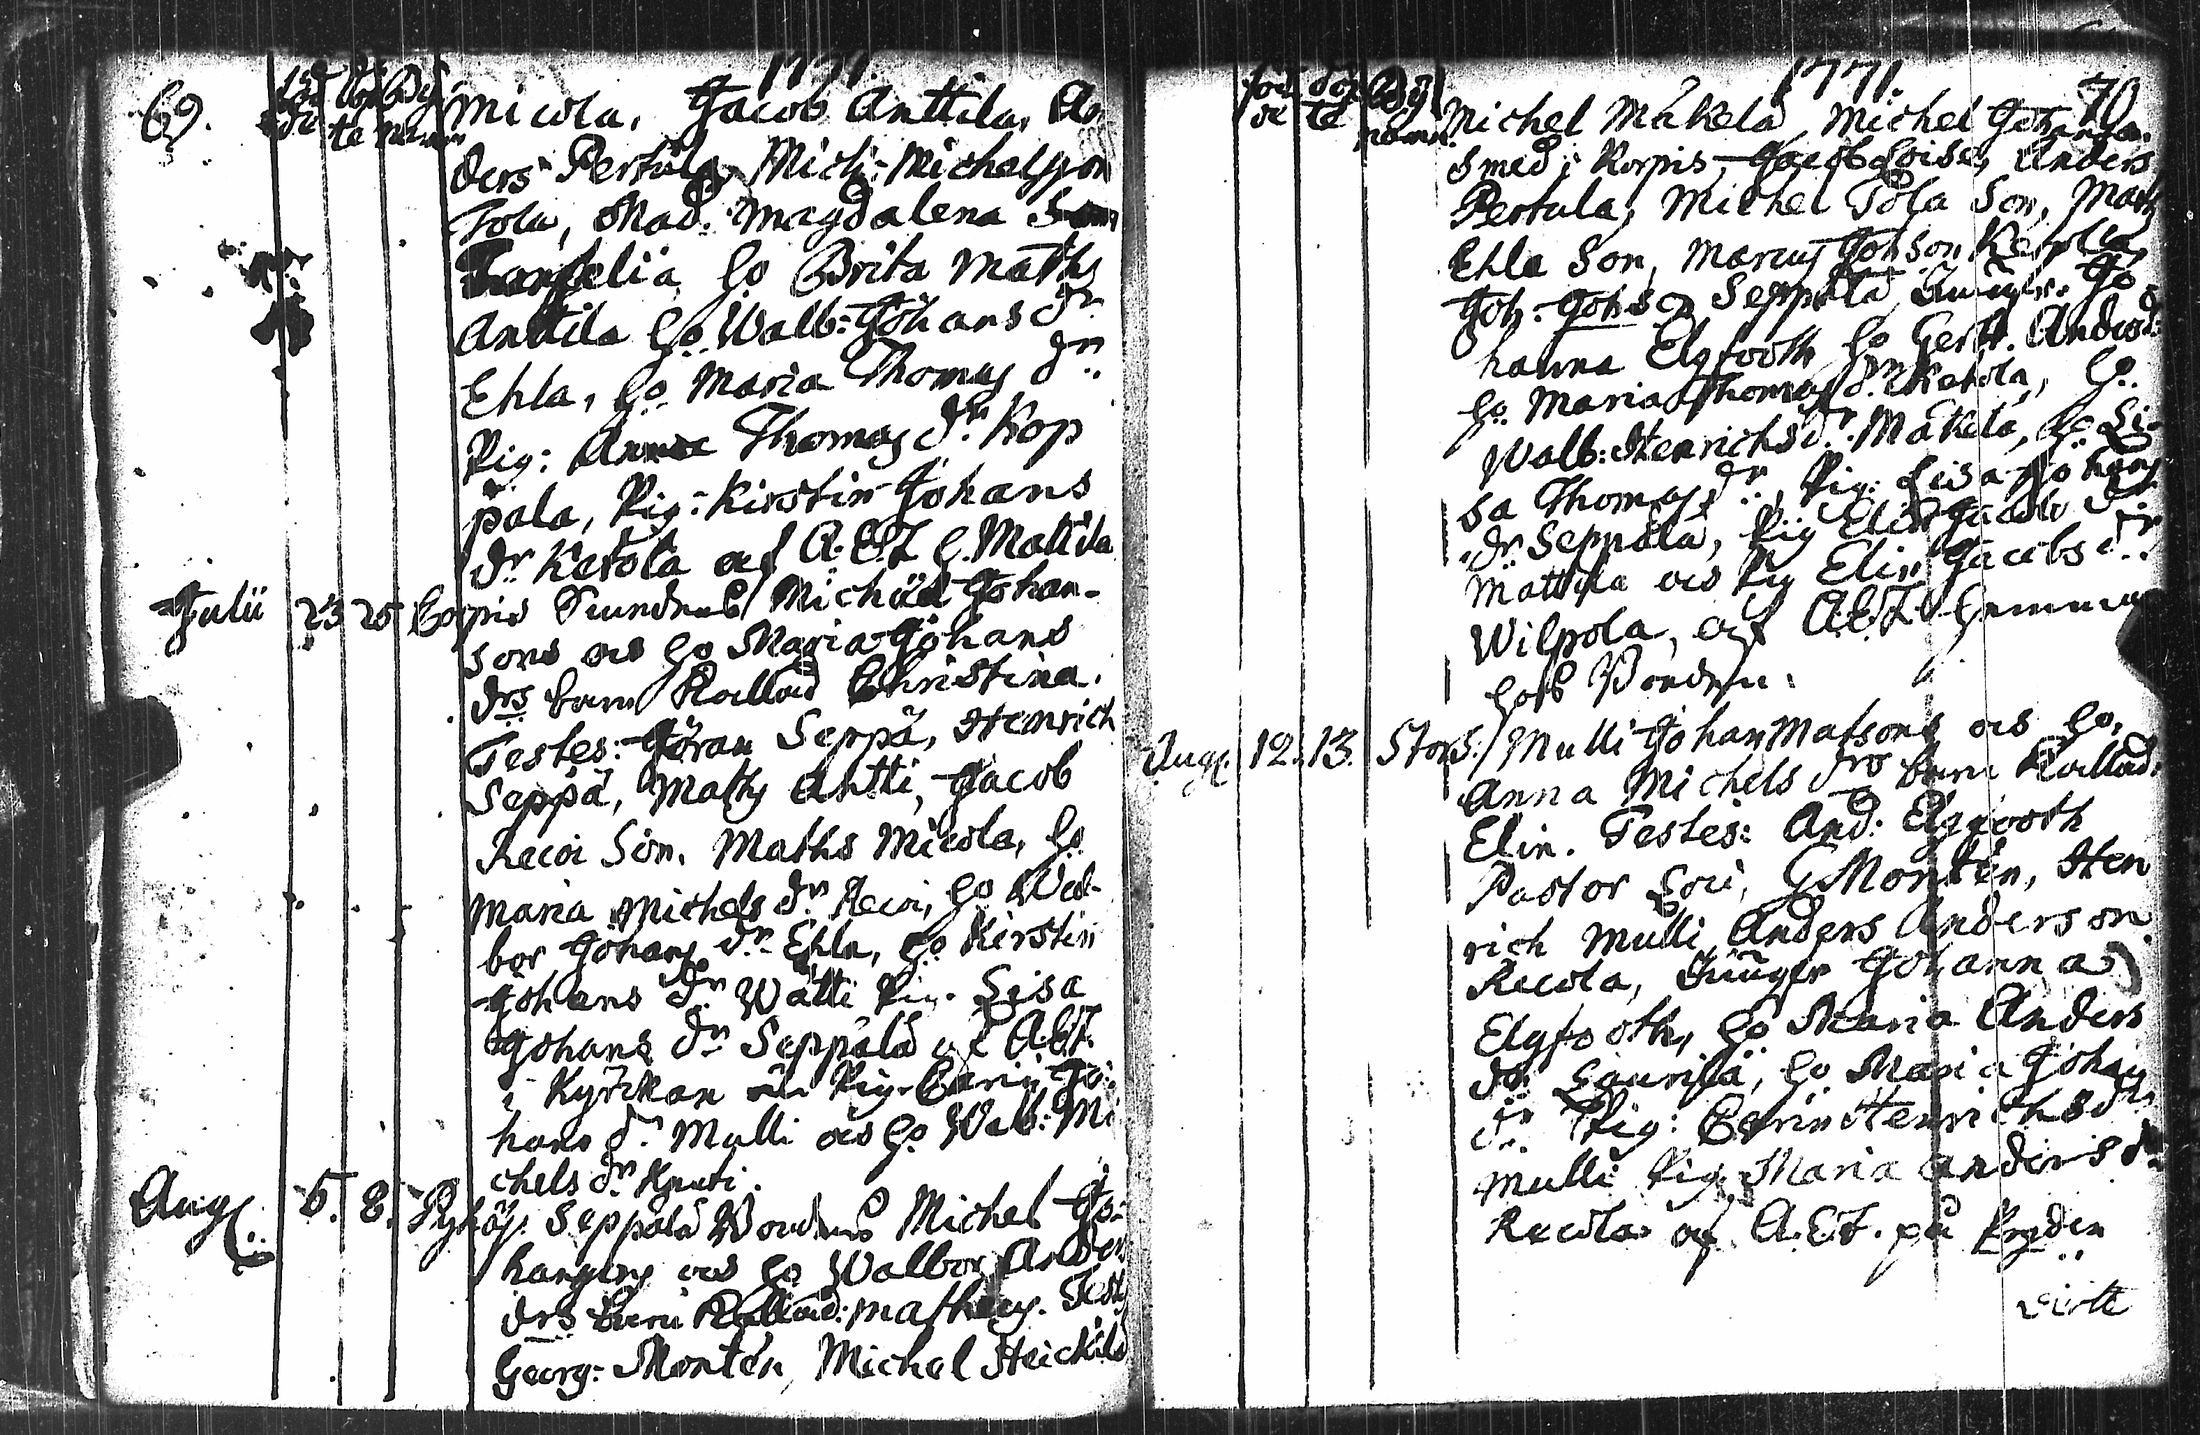 69.
1771
föd de
döp te
By namn
Micola, Jacob Anttila, An
ders Pertula, Mich: Michelsson
Tola, Mad. Magdalena
Forselia, ho Brita Maths
Anttila ho. Walb: Johans dr
Ehla, ho Maria Thomas dr
Pig: Anna Thomas dr Kop
pala, Pig: Kirstin Johans
dr Ketola af A. E. T. Mattila
Julii 23 25 Corpis Michäel Johan-
sons ås ho Maria Johans
drs barn Kallad Christina.
Testes: Jöran Seppä, Henrich
Seppä, Maths Antti, Jacob
Recoi Son. Maths Micola, ho
Maria Michels dr Recoi, ho Wal-
bor Johans dr Ehla, ho Kirstin
Johans dr Wätti Pig. Lisa
Johans dr Seppälä af A. E. T.
i Kyrckan Pig. Carin Jo-
hans dr Mulli ås ho Walb: Mi
chels dr Knuti.
Aug 5. 8. Pyhäj. Seppälä Michel Jo-
hansons ås ho Walbor Anders
drs barn Kallad: Mathias. Test
Georg: Montén, Michel Heickilä
1771.
70
föd de
döp te
By namn.
Michel Mäkelä, Michel Johanson
Smed i Korpis, Jacob Anders
Pertula, Michel Tola Son, Maths
Ehla Son, Marcus Johson
Joh: Johson Seppälä Jungfr. Jo
hanna Elgfooth ho Gertr. Andersd:
ho Maria Thomas dr Ketola, ho.
Walb: Henrichs dr Mäkelä, ho Li-
sa Thomas dr, Pig: Lisa Johans
dr Seppälä, Pig Elin Jacobs dr
Mattila ås Pig Elin Jacobs dr
Wilpola, af A. E. T. hemma
hos
Aug. 12. 13. Stors: Mulli Johan Matsons ås ho.
Anna Michels drs barn Kallad.
Elin. Testes: And: Elgfooth
Pastor Loci, G Montén, Hen
rich Mulli, Anders Anderson
Recola, Jungfr Johanna
Elgfooth, ho Maria Anders
dr Laurila, ho Maria Johans
dr Pig: Carin Henrichs dr
Mulli Pig. Maria Anders dr
Recola af A. E. T. på